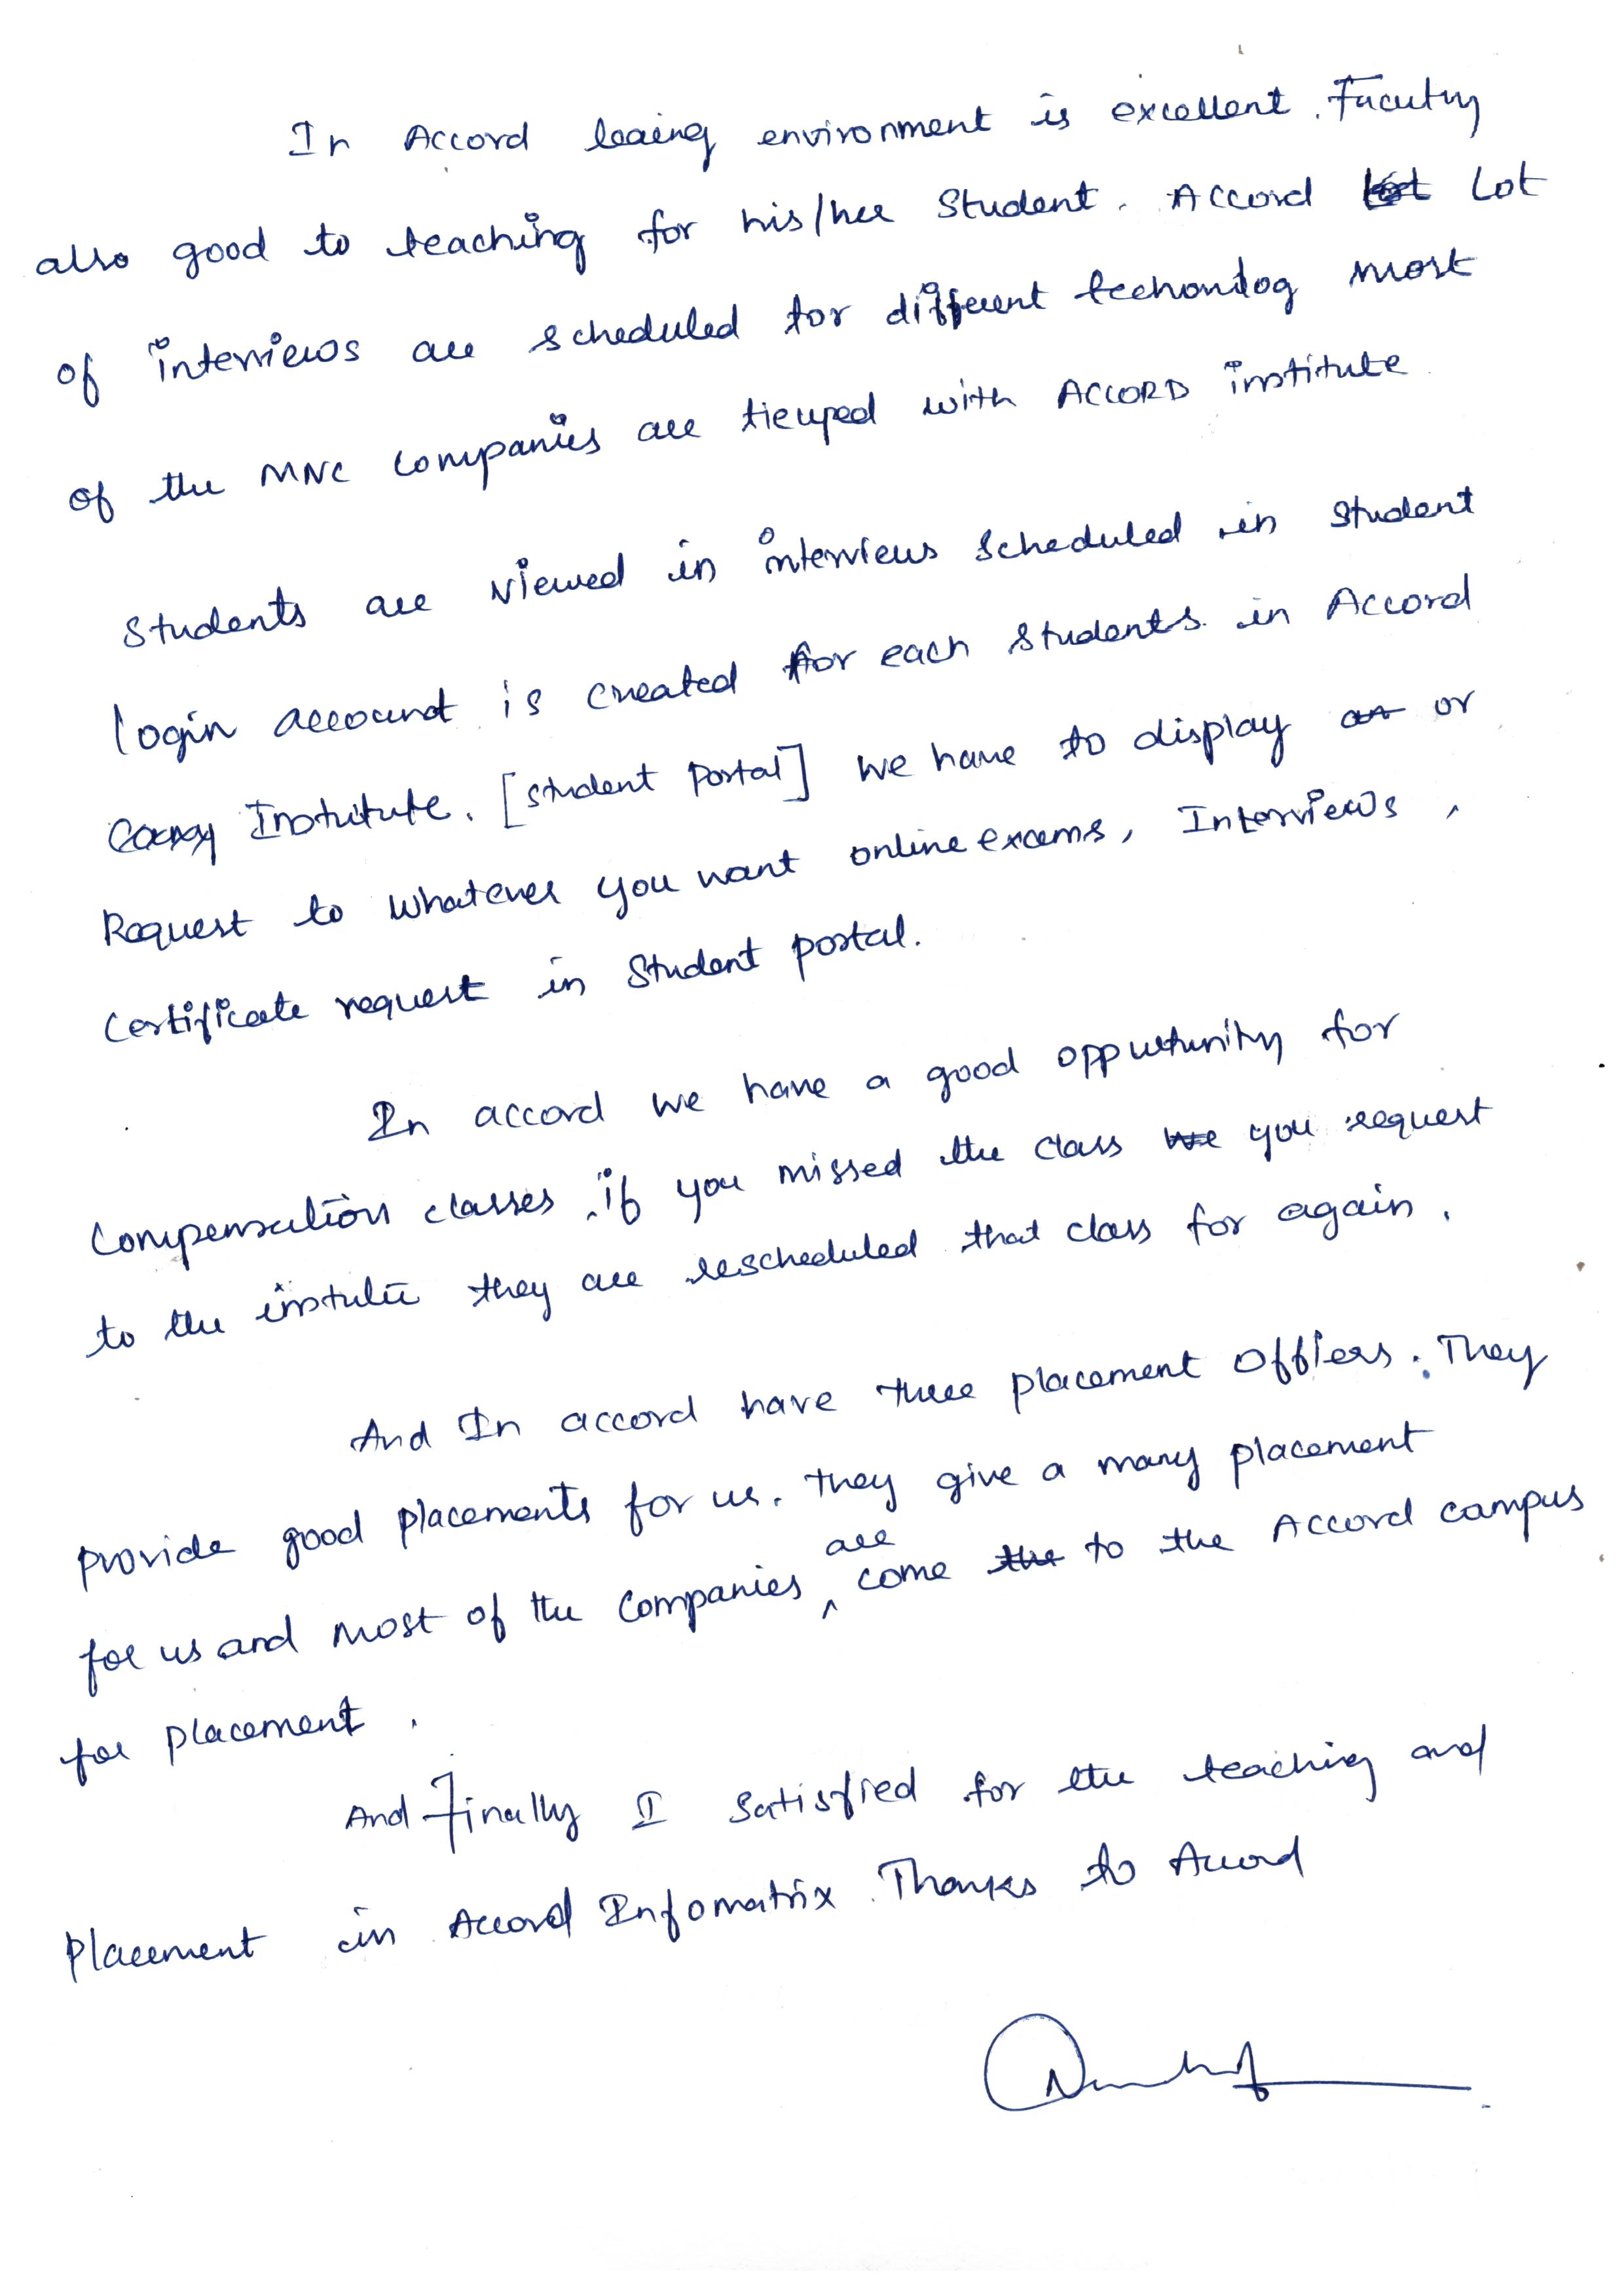 In Accord leaing environment is excellent. Facutry
also good to teaching for his/her Student. Accord Lot
of interviews are scheduled for different techonolog most
of the MNC Companies are tieuped with ACCORD institute
Students are viewed in interviews Scheduled in Student
login account is created for each Students in Accord
Institute. [student Portal] we have to display or
Request to whatever you want online exams, Interviews,
Certificate request in Student portal.
In accord we have a good oppurtunity for
Compensation classes. if you missed the class you request
to the instute they are rescheduled that class for again.
And In accord have three placement Offiers. They
provide good placements for us. They give a many placement
for us and most of the Companies are come to the Accord campus
for placement.
And Finally I Satisfied for the teaching and
Placement in Accord Infomatrix. Thanks to Accord